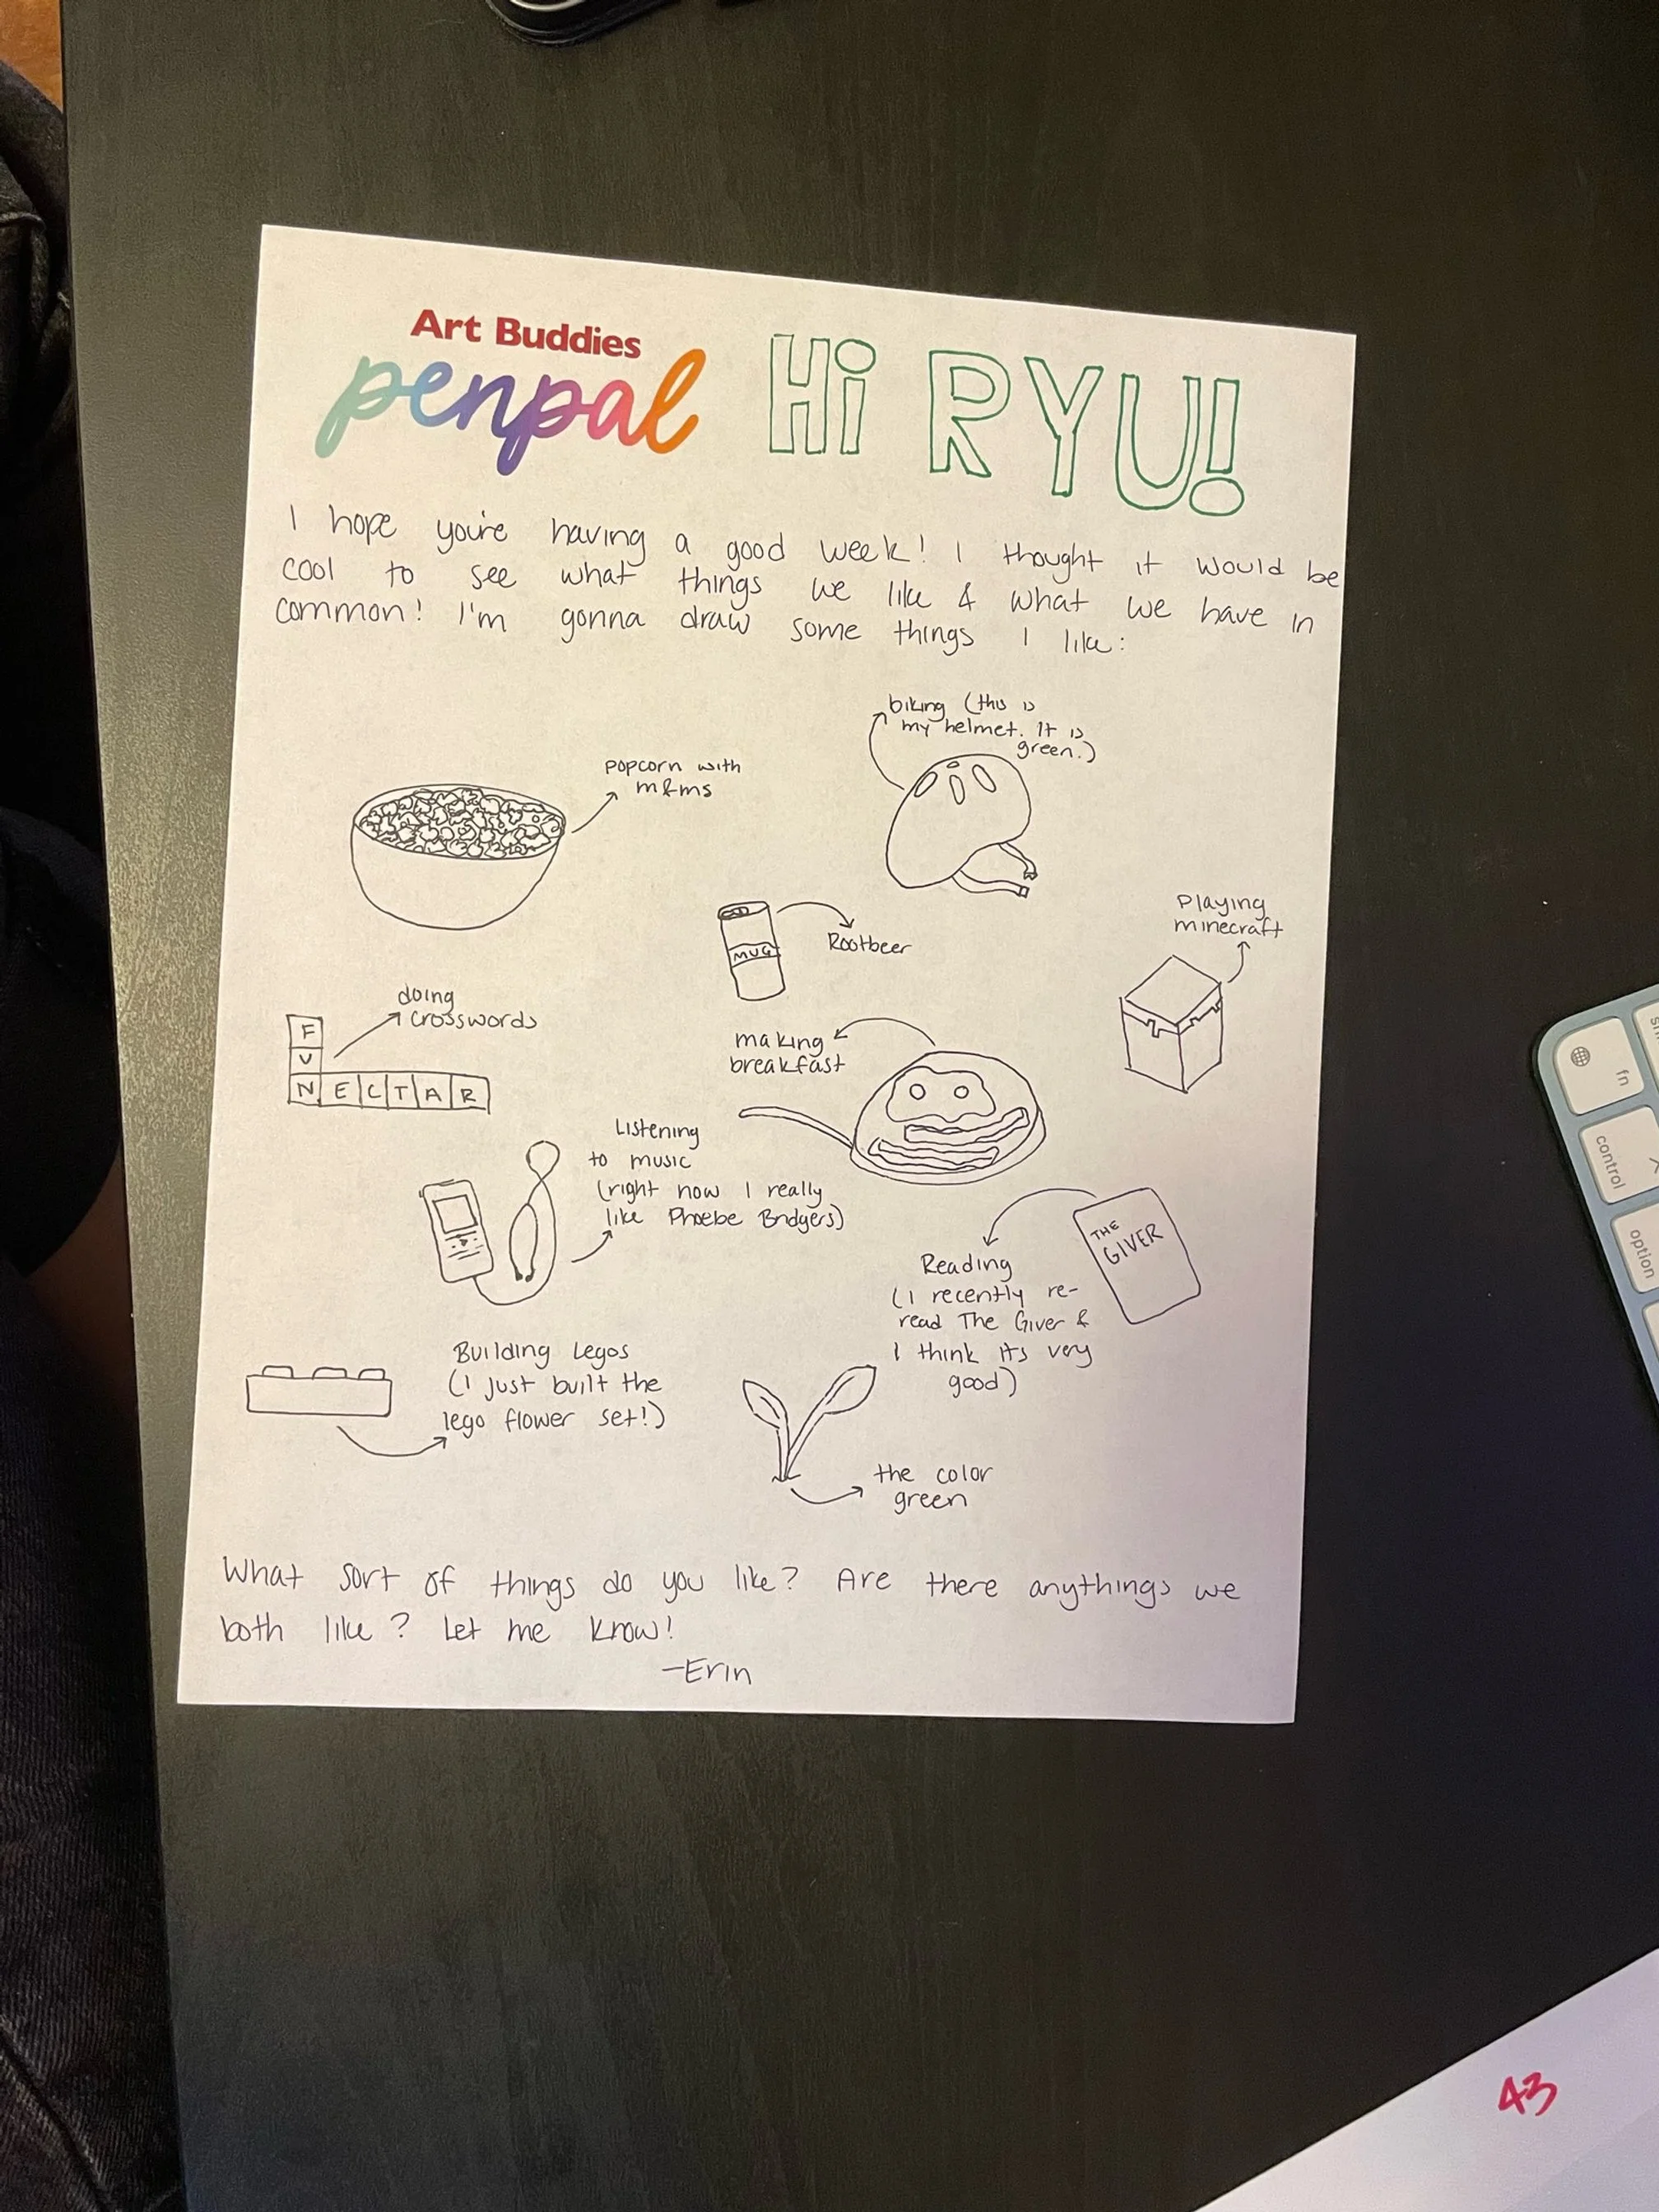 Art Buddies
penpal
Hi RYU!
I hope you're having a good week! I thought it would be
cool to see what things we like & what we have in
common! I'm gonna draw some things I like:
biking (this is
my helmet. It is
green.)
popcorn with
m&ms
MUG
Rootbeer
Playing
minecraft
doing
crosswords
F
U
NECTAR
making
breakfast
Listening
to music
(right now I really
like Phoebe Bridgers)
THE
GIVER
Reading
(I recently re-
read The Giver &
I think its very
good)
Building Legos
(I just built the
lego flower set!)
the color
green
What sort of things do you like? Are there anythings we
both like? Let me know!
-Erin
fn
control
option
43